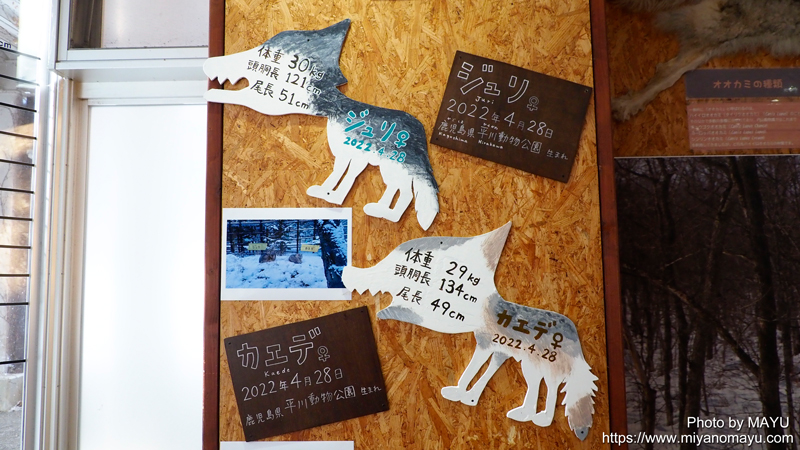 体重 30kg
頭胴長 121cm
尾長 51cm
ジュリ♀
2022.4.28
ジュリ♀
Juri
2022年4月28日
鹿児島県 平川動物公園 生まれ
Kagoshima Hirakawa
体重 29kg
頭胴長 134cm
尾長 49cm
カエデ♀
2022.4.28
カエデ♀
Kaede
2022年4月28日
鹿児島県 平川動物公園 生まれ
オオカミの種類
Photo by MAYU
https://www.miyanomayu.com/